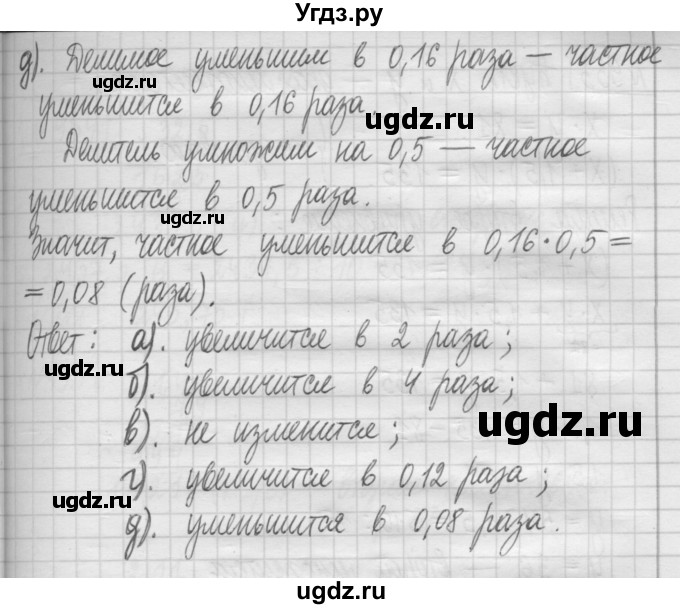 Угдз.ру
д). Делимое уменьшим в 0,16 раза — частное
уменьшится в 0,16 раза.
Делитель умножим на 0,5 — частное
уменьшится в 0,5 раза.
Значит, частное уменьшится в 0,16·0,5=
=0,08 (раза).
Ответ: а). увеличится в 2 раза;
б). увеличится в 4 раза;
в). не изменится;
г). увеличится в 0,12 раза;
д). уменьшится в 0,08 раза.
ugdz.ru
ugdz.ru
ugdz.ru
ugdz.ru
ugdz.ru
ugdz.ru
ugdz.ru